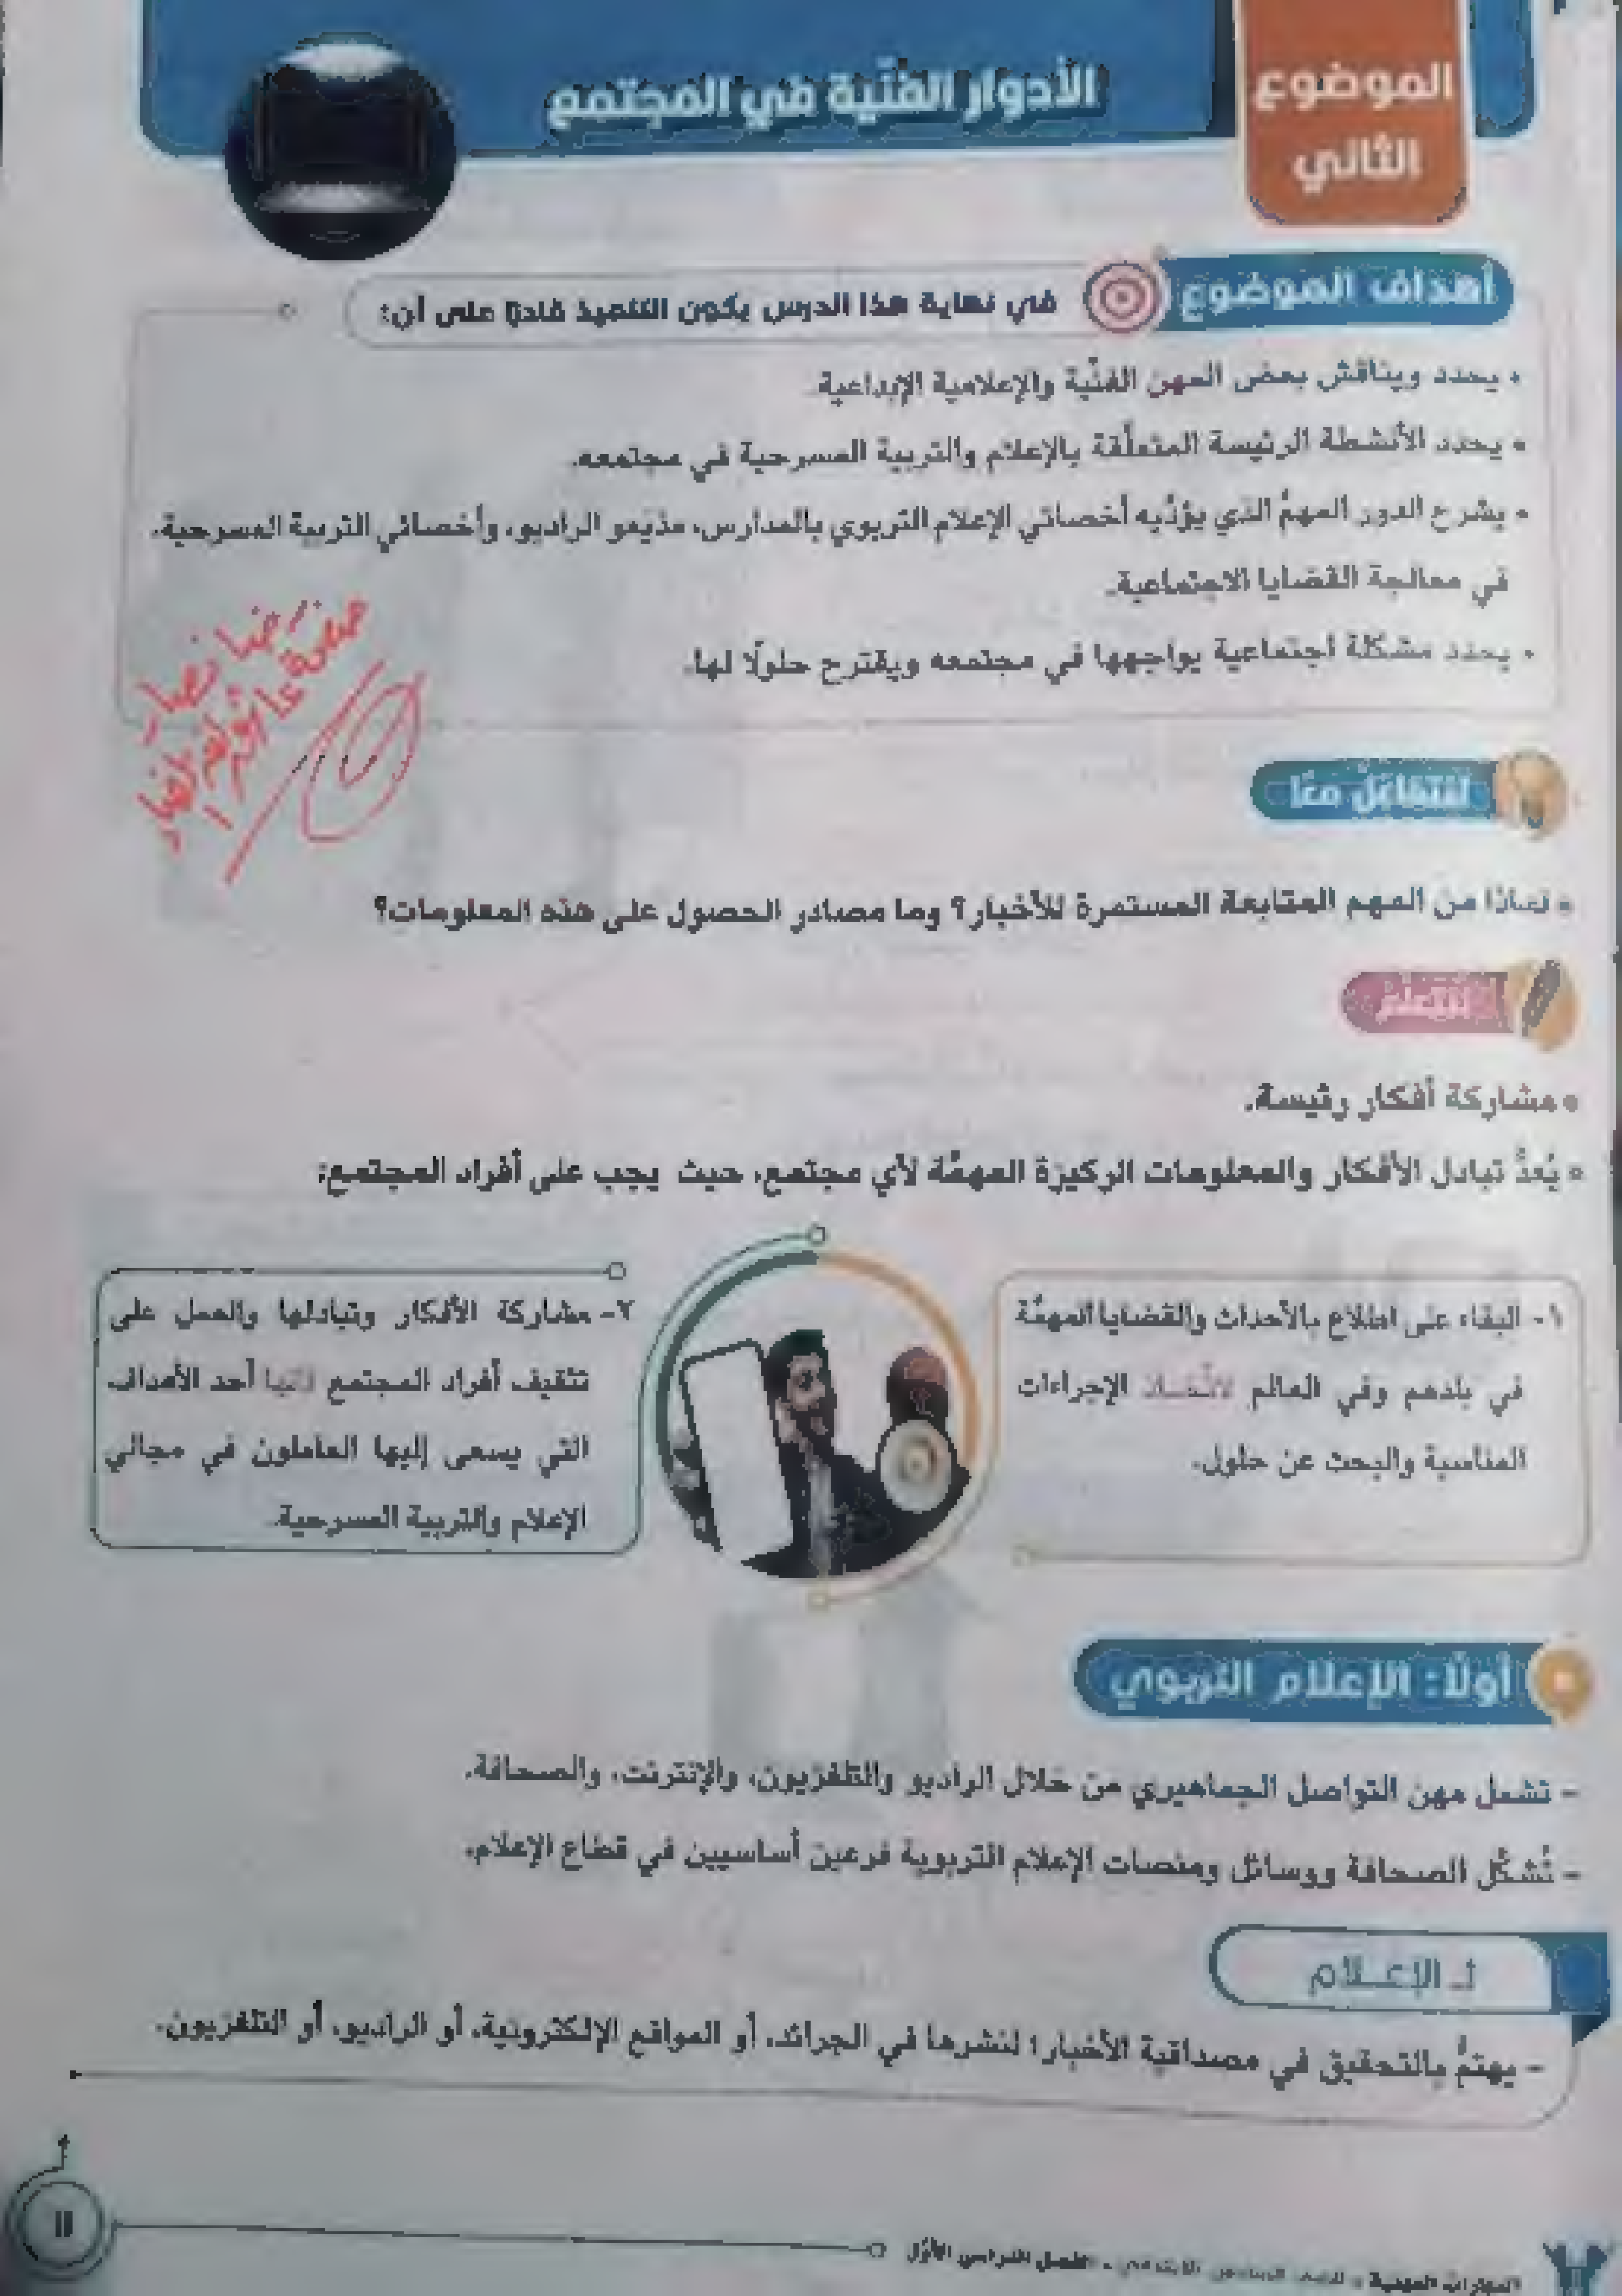 الموضوع
الثاني
الأدوار الفنّية في المجتمع
أهداف الموضوع
في نهاية هذا الدرس يكون التلميذ قادرًا على أن:
• يحدد ويناقش بعض المهن الفنّية والإعلامية الإبداعية.
• يحدد الأنشطة الرئيسة المتعلّقة بالإعلام والتربية المسرحية في مجتمعه.
• يشرح الدور المهمَّ الذي يؤدِّيه أخصائي الإعلام التربوي بالمدارس، مذيعو الراديو، وأخصائي التربية المسرحية،
في معالجة القضايا الاجتماعية.
• يحدد مشكلة اجتماعية يواجهها في مجتمعه ويقترح حلولًا لها.
لنتفاعل معًا
• لماذا من المهم المتابعة المستمرة للأخبار؟ وما مصادر الحصول على هذه المعلومات؟
لنتعلم
• مشاركة أفكار رئيسة.
• يُعدُّ تبادل الأفكار والمعلومات الركيزة المهمَّة لأي مجتمع، حيث يجب على أفراد المجتمع:
١- البقاء على اطلاع بالأحداث والقضايا المهمَّة
في بلدهم وفي العالم لاتّخاذ الإجراءات
المناسبة والبحث عن حلول.
٢- مشاركة الأفكار وتبادلها والعمل على
تثقيف أفراد المجتمع أحد الأهداف
التي يسعى إليها العاملون في مجالي
الإعلام والتربية المسرحية.
أولًا: الإعلام التربوي
- تشمل مهن التواصل الجماهيري من خلال الراديو والتلفزيون، والإنترنت، والصحافة.
- تُشكِّل الصحافة ووسائل ومنصات الإعلام التربوية فرعين أساسيين في قطاع الإعلام.
أـ الإعـلام
- يهتمُّ بالتحقيق في مصداقية الأخبار؛ لنشرها في الجرائد، أو المواقع الإلكترونية، أو الراديو، أو التلفزيون.
المهارات المهنية - للصف السادس الابتدائي - الفصل الدراسي الأوَّل
١١